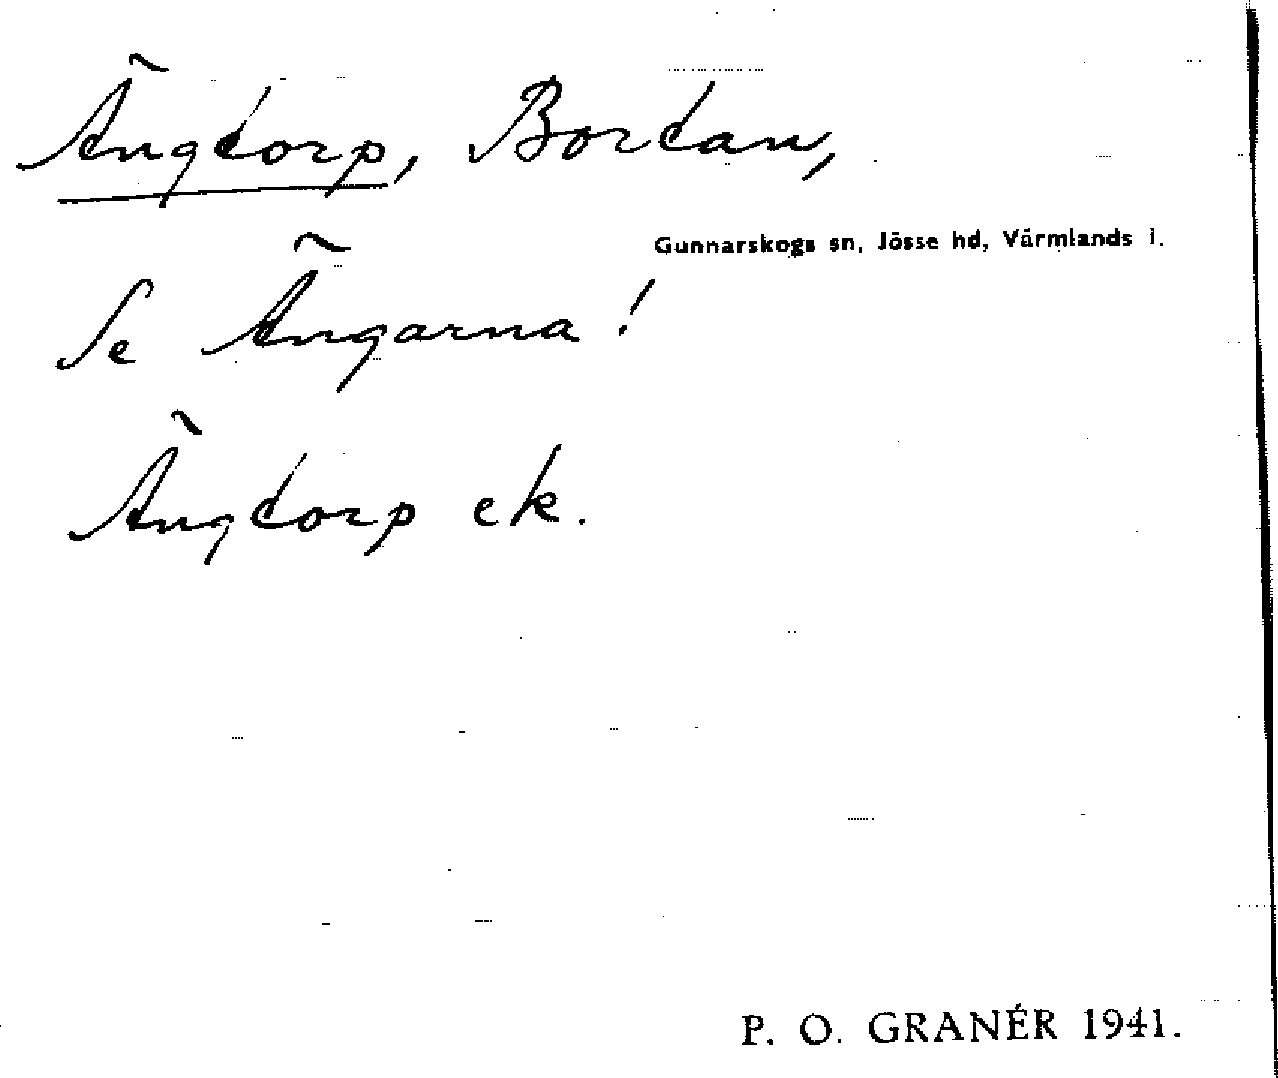 Ängtorp, Bortan,
Gunnarskogs sn, Jösse hd, Värmlands l.
Se Ängarna!
Ängtorp ek.
P. O. GRANÉR 1941.